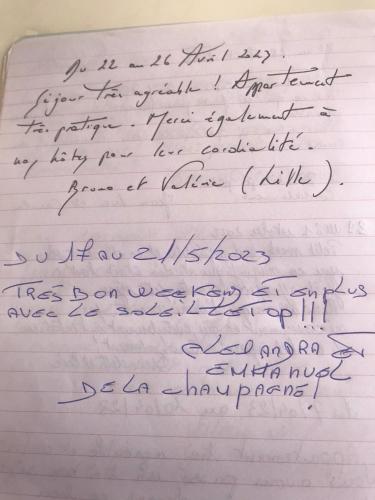 Du 22 au 26 Avril 2023.
Séjour très agréable ! Appartement
très pratique. Merci également à
nos hôtes pour leur cordialité.
Bruno et Valérie (Lille).
DU 17 AU 21/5/2023
TRES BON WEEKEND ET EN PLUS
AVEC LE SOLEIL LE TOP !!!
ET
EMMANUEL
DE LA CHAMPAGNE!